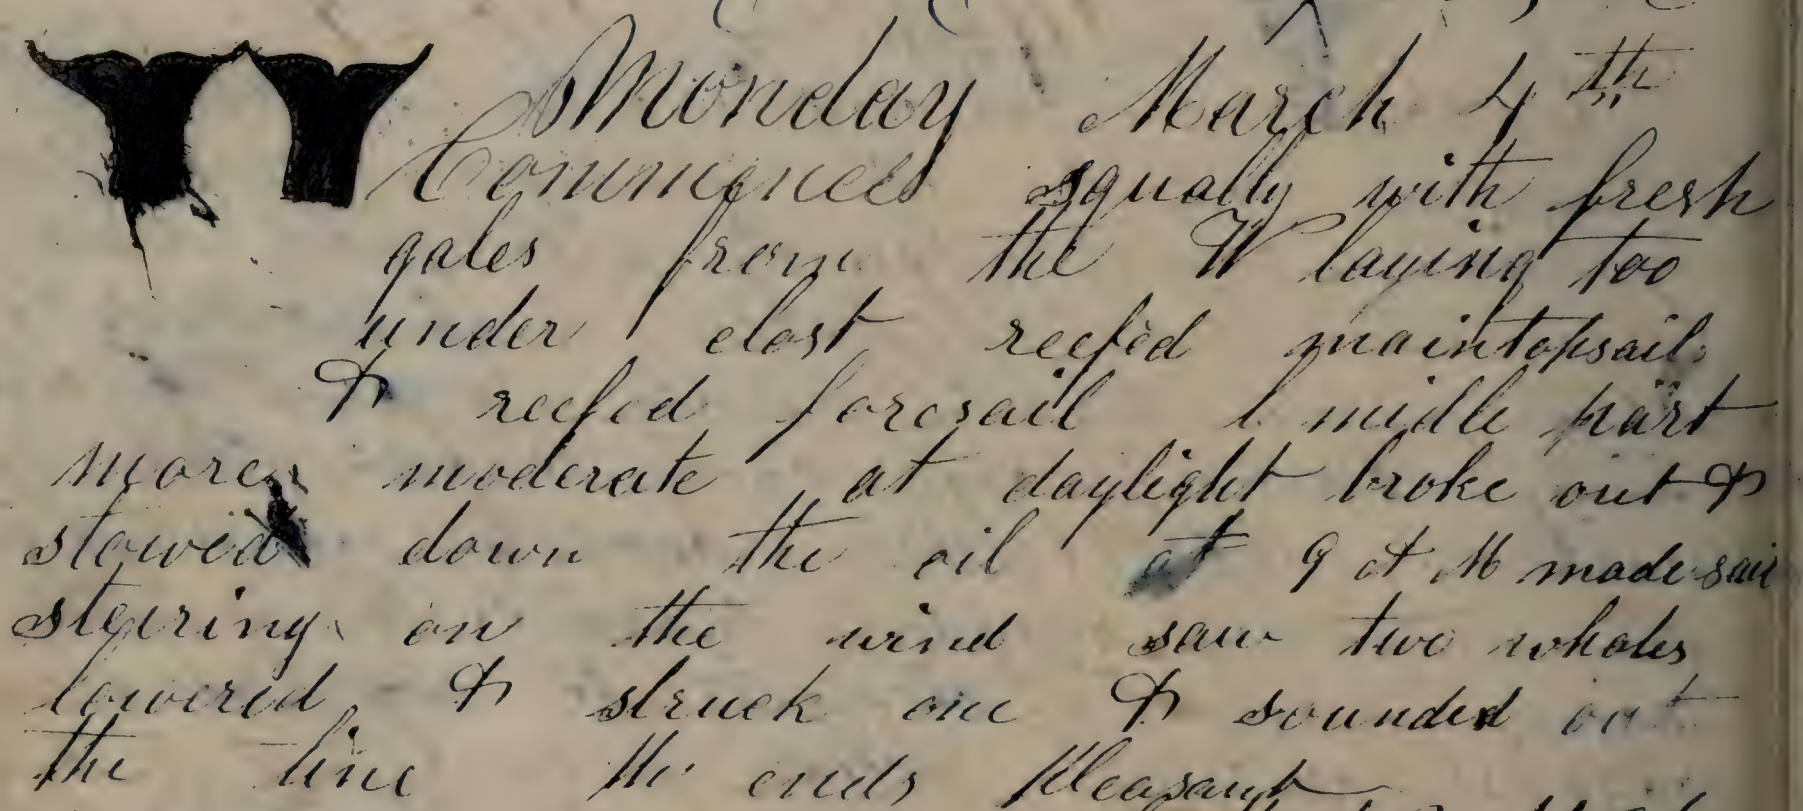 Monday March 4th
Commences squally with fresh
gales from the W laying too
under clost reefed maintopsail
& reefed foresail midle part
more moderate at daylight broke out &
stowed down the oil at 9 A M made sail
stearing on the wind saw two whales
lowered & struck one & sounded out
the line ends Pleasant